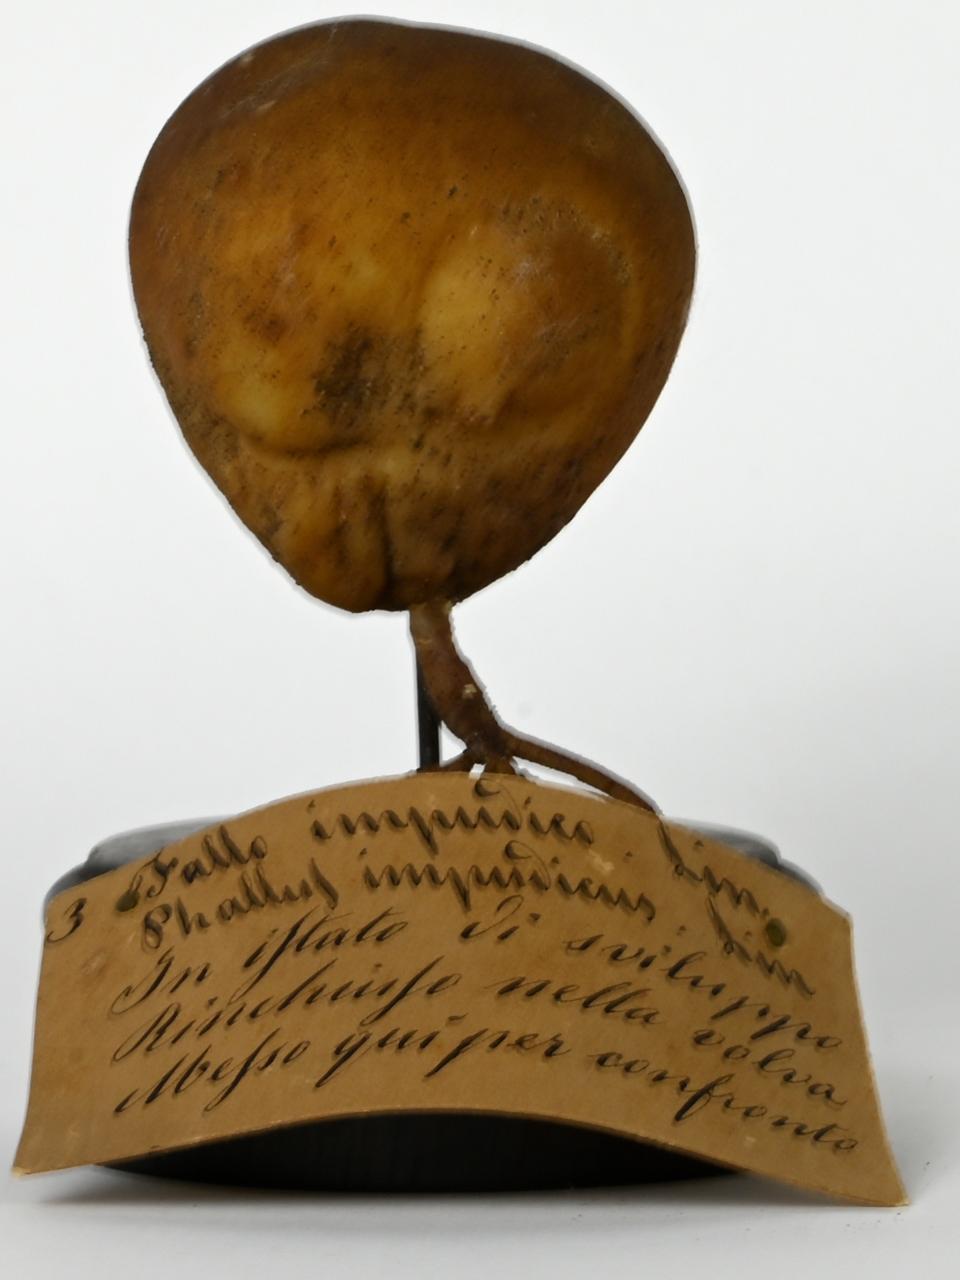 3 Fallo impudico Lin.
Phallus impudicus Lin
In istato di sviluppo
Rinchiuso nella volva
Messo qui per confronto